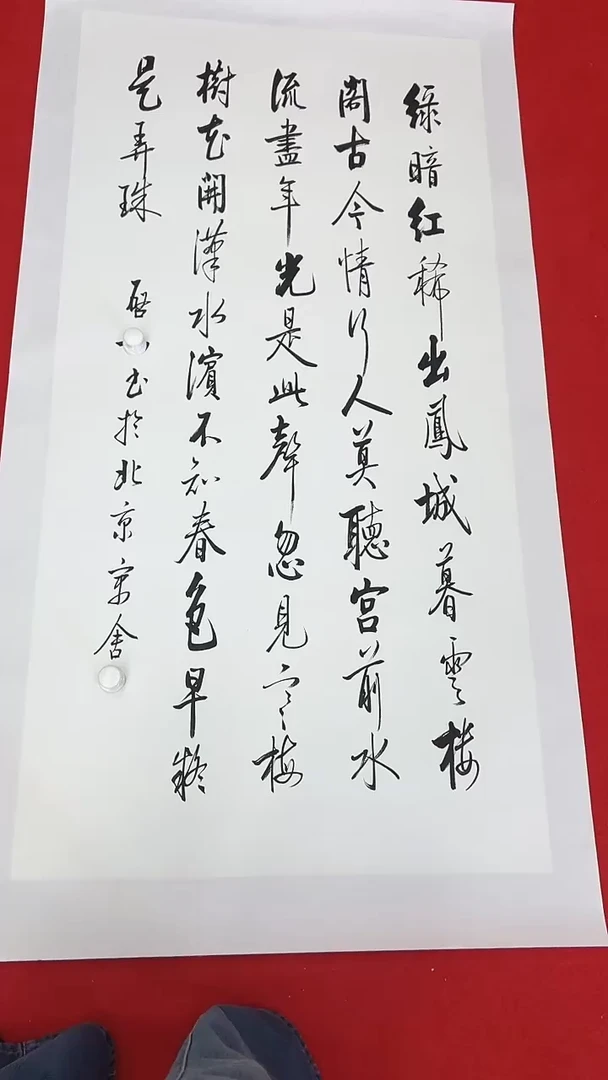 綠暗紅稀出鳳城暮雲楼
閣古今情行人莫聽宮前水
流盡年光是此聲忽見寒梅
樹花開漢水濱不知春色早疑
是弄珠
啟 书於北京寓舍